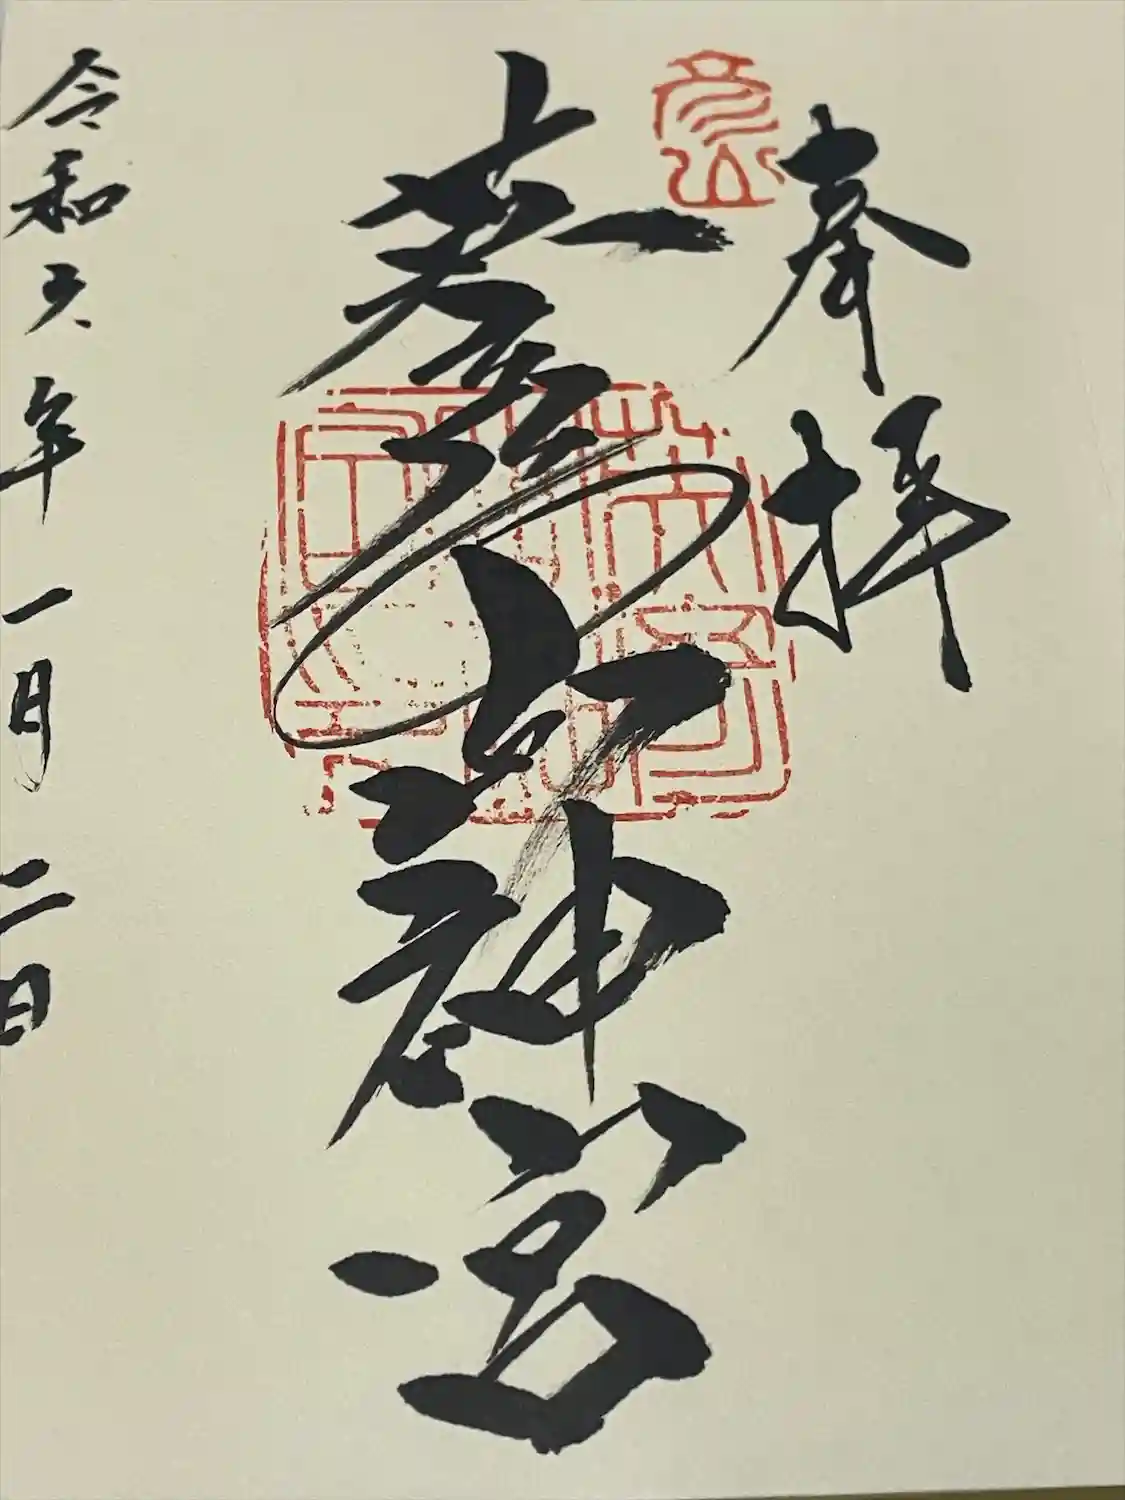 奉拝
英彦山神宮
令和六年一月二日